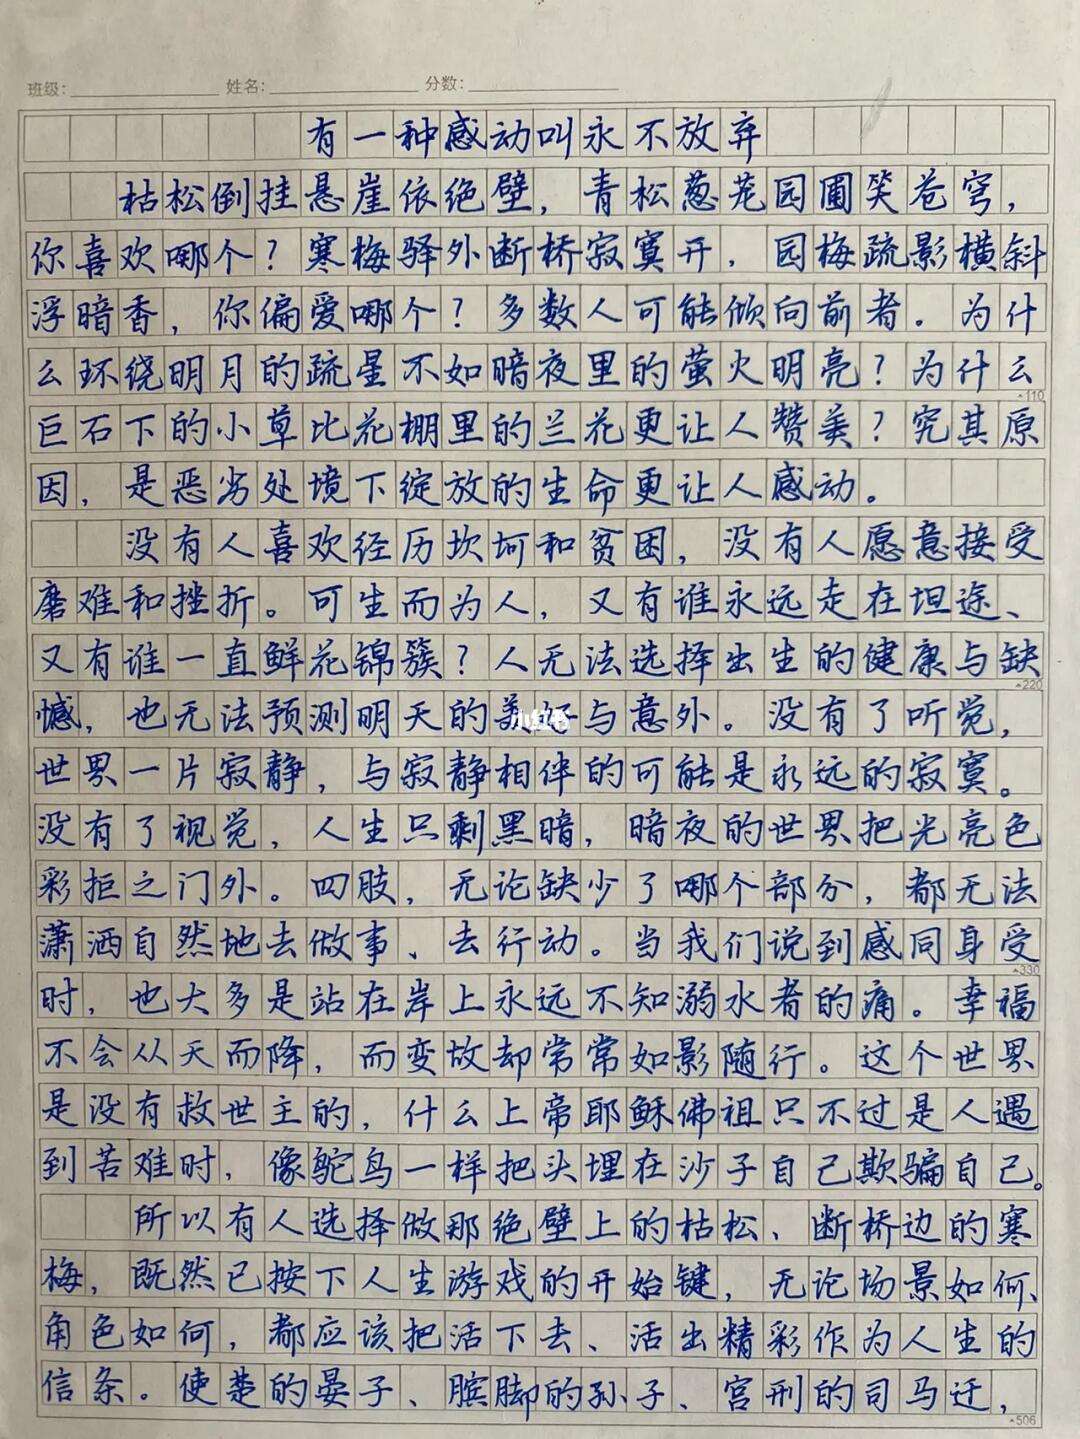 班级： 姓名： 分数：
有一种感动叫永不放弃
枯松倒挂悬崖依绝壁，青松葱茏园圃笑苍穹，
你喜欢哪个？寒梅驿外断桥寂寞开，园梅疏影横斜
浮暗香，你偏爱哪个？多数人可能倾向前者。为什
么环绕明月的疏星不如暗夜里的萤火明亮？为什么
110
巨石下的小草比花棚里的兰花更让人赞美？究其原
因，是恶劣处境下绽放的生命更让人感动。
没有人喜欢经历坎坷和贫困，没有人愿意接受
磨难和挫折。可生而为人，又有谁永远走在坦途、
又有谁一直鲜花锦簇？人无法选择出生的健康与缺
220
憾，也无法预测明天的美好与意外。没有了听觉，
小红书
世界一片寂静，与寂静相伴的可能是永远的寂寞。
没有了视觉，人生只剩黑暗，暗夜的世界把光亮色
彩拒之门外。四肢，无论缺少了哪个部分，都无法
潇洒自然地去做事、去行动。当我们说到感同身受
330
时，也大多是站在岸上永远不知溺水者的痛。幸福
不会从天而降，而变故却常常如影随行。这个世界
是没有救世主的，什么上帝耶稣佛祖只不过是人遇
到苦难时，像鸵鸟一样把头埋在沙子自己欺骗自己。
所以有人选择做那绝壁上的枯松、断桥边的寒
梅，既然已按下人生游戏的开始键，无论场景如何、
角色如何，都应该把活下去、活出精彩作为人生的
信条。使楚的晏子、膑脚的孙子、宫刑的司马迁，
506